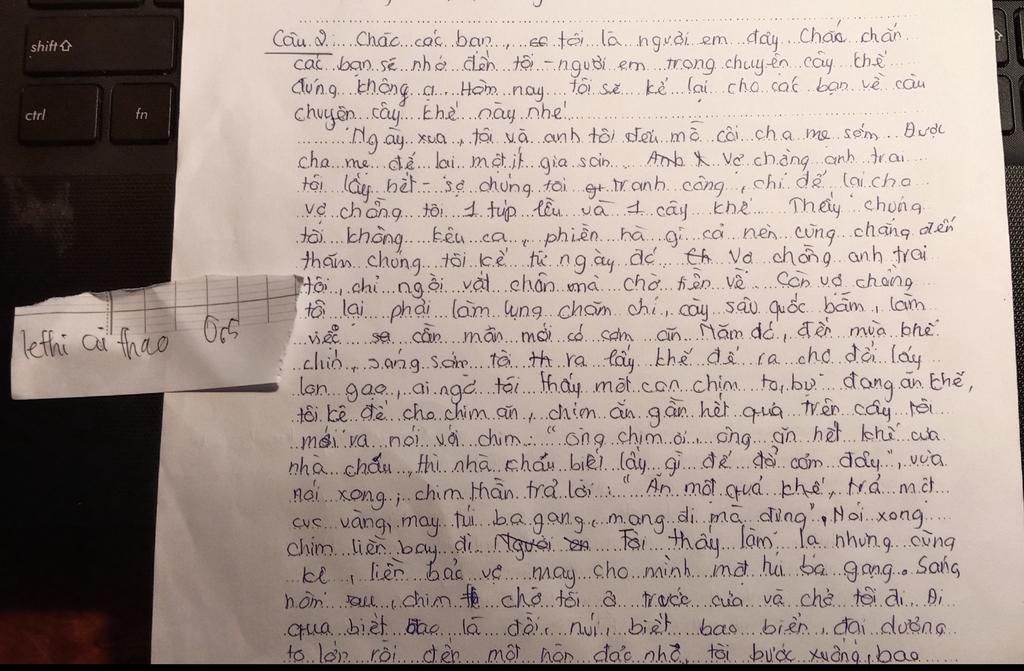 shift⇧
ctrl
fn
Câu 2: Chắc các bạn, tôi là người em đây. Chắc chắn
các bạn sẽ nhớ đến tôi - người em trong chuyện cây khế
đúng không ạ. Hôm nay tôi sẽ kể lại cho các bạn về câu
chuyện cây khế này nhé.
Ngày xưa, tôi và anh tôi đều mồ côi cha mẹ sớm. Được
cha mẹ để lại một ít gia sản. Vợ chồng anh trai
tôi lấy hết - sợ chúng tôi tranh công, chỉ để lại cho
vợ chồng tôi 1 túp lều và 1 cây khế. Thấy chúng
tôi không kêu ca, phiền hà gì cả nên cũng chẳng đến
thăm chúng tôi kể từ ngày đó. Vợ chồng anh trai
tôi, chỉ ngồi vắt chân mà chờ tiền về. Còn vợ chồng
tôi lại phải làm lụng chăm chỉ, cày sâu quốc bẫm, làm
việc cần mẫn mới có cơm ăn. Năm đó, đến mùa khế
chín, sáng sớm tôi ra lấy khế để ra chợ đổi lấy
lon gạo, ai ngờ tôi thấy một con chim to, bự đang ăn khế,
tôi kệ để cho chim ăn, chim ăn gần hết quả trên cây tôi
mới ra nói với chim: "ông chim ơi, ông ăn hết khế của
nhà cháu, thì nhà cháu biết lấy gì để đổi cơm đây", vừa
nói xong, chim thần trả lời: "Ăn một quả khế, trả một
cục vàng, may túi ba gang, mang đi mà đựng", Nói xong
chim liền bay đi. Tôi thấy làm lạ nhưng cũng
kệ, liền bảo vợ may cho mình một túi ba gang. Sáng
hôm sau, chim chờ tôi ở trước cửa và chở tôi đi. Đi
qua biết bao là đồi, núi, biết bao biển, đại dương
to lớn rồi đến một hòn đảo nhỏ, tôi bước xuống, bao
lethi cẩi thao 065